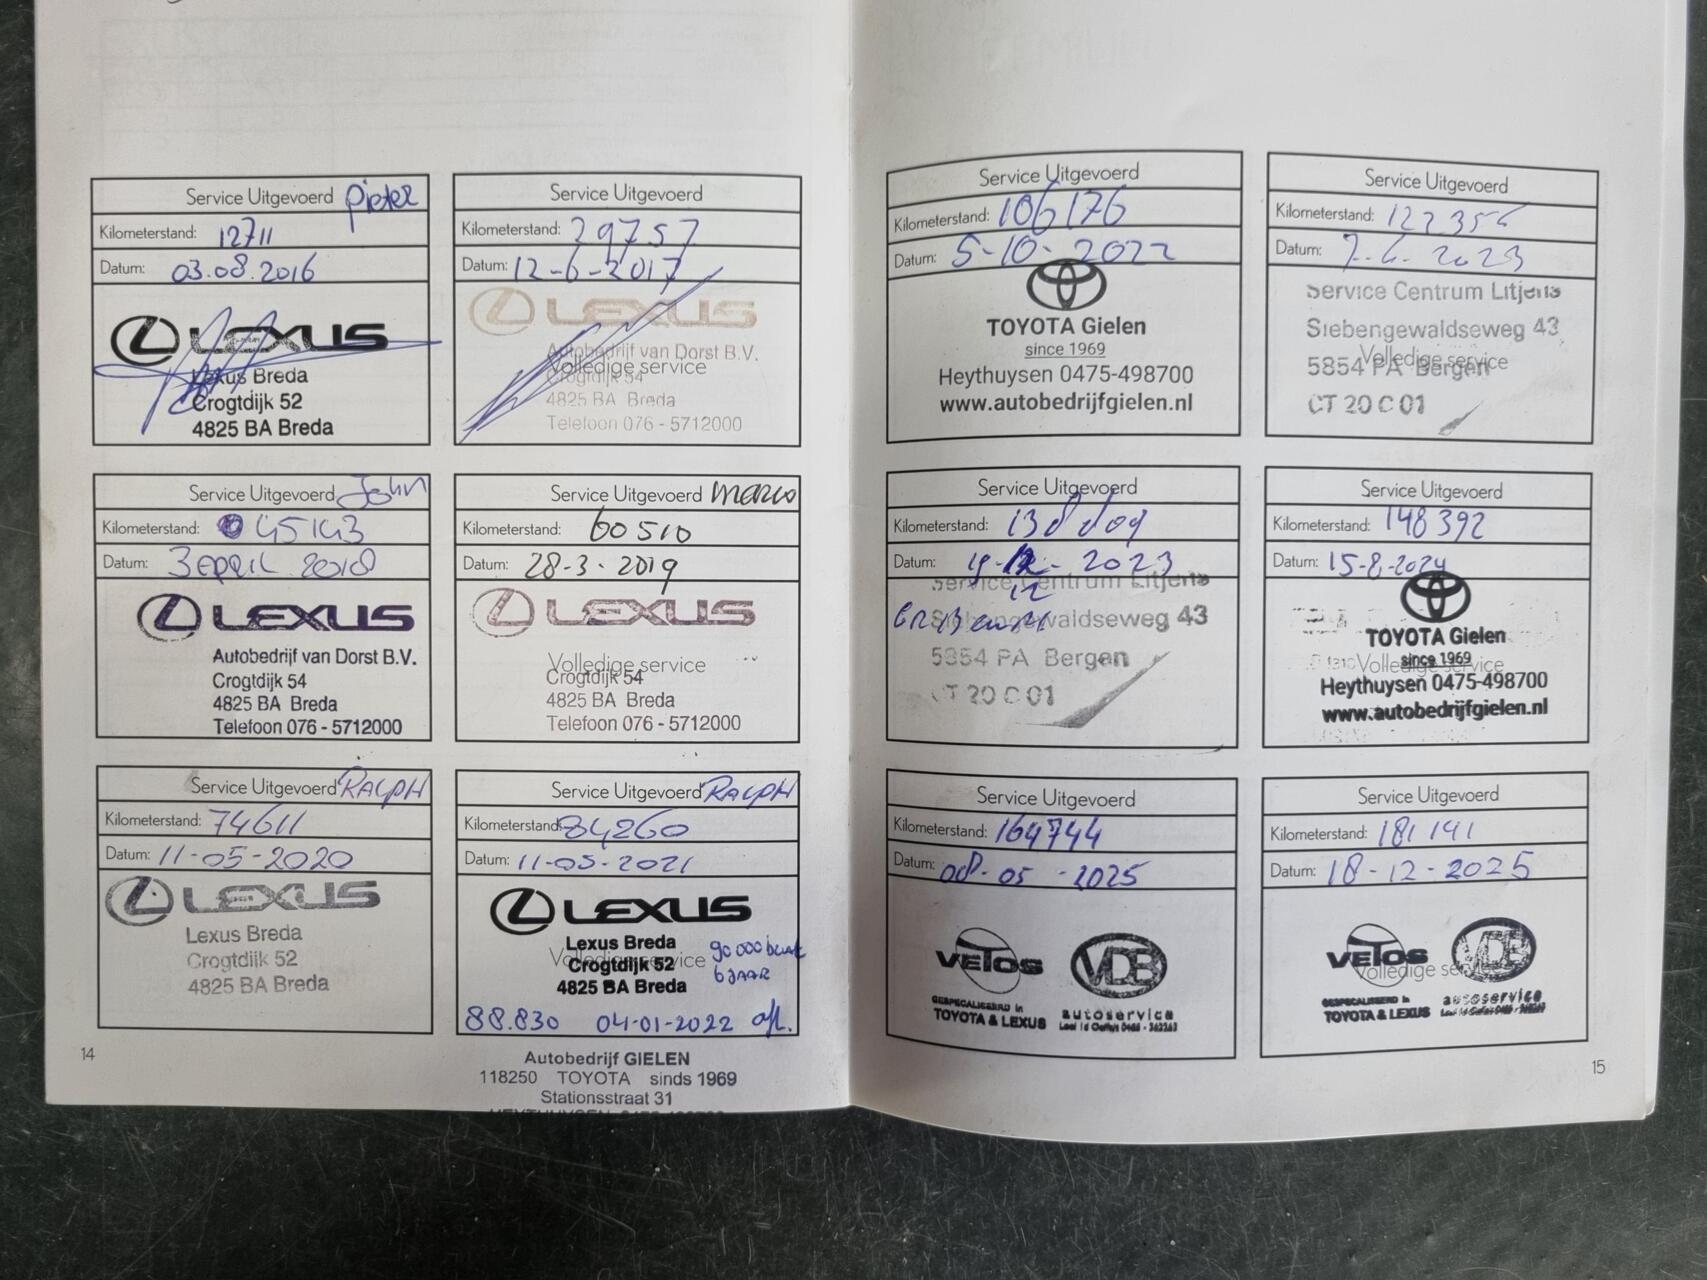 Service Uitgevoerd Pieter
Kilometerstand: 12711
Datum: 03.08.2016
LEXUS
Lexus Breda
Crogtdijk 52
4825 BA Breda
Service Uitgevoerd
Kilometerstand: 29757
Datum: 12-6-2017
LEXUS
Autobedrijf van Dorst B.V.
Volledige service
Crogtdijk 54
4825 BA Breda
Telefoon 076 - 5712000
Service Uitgevoerd John
Kilometerstand: 45143
Datum: 3 APRIL 2018
LEXUS
Autobedrijf van Dorst B.V.
Crogtdijk 54
4825 BA Breda
Telefoon 076 - 5712000
Service Uitgevoerd Marco
Kilometerstand: 60510
Datum: 28-3-2019
LEXUS
Volledige service
Crogtdijk 54
4825 BA Breda
Telefoon 076 - 5712000
Service Uitgevoerd RALPH
Kilometerstand: 74611
Datum: 11-05-2020
LEXUS
Lexus Breda
Crogtdijk 52
4825 BA Breda
Service Uitgevoerd RALPH
Kilometerstand: 84260
Datum: 11-05-2021
LEXUS
Lexus Breda
Volledige service
Crogtdijk 52
4825 BA Breda
90.000 beurt
6 JAAR
88.830 04-01-2022 afl.
14
Autobedrijf GIELEN
118250 TOYOTA sinds 1969
Stationsstraat 31
Service Uitgevoerd
Kilometerstand: 106176
Datum: 5-10-2022
TOYOTA Gielen
since 1969
Heythuysen 0475-498700
www.autobedrijfgielen.nl
Service Uitgevoerd
Kilometerstand:
Datum: 7-6-2023
Service Centrum Litjens
Siebengewaldseweg 43
Volledige service
5854 PA Bergen
CT 20 C 01
Service Uitgevoerd
Kilometerstand:
Datum: 19-12-2023
12
Service Centrum Litjens
Siebengewaldseweg 43
5854 PA Bergen
CT 20 C 01
Service Uitgevoerd
Kilometerstand: 148392
Datum: 15-8-2024
TOYOTA Gielen
since 1969
Volledige service
Heythuysen 0475-498700
www.autobedrijfgielen.nl
Service Uitgevoerd
Kilometerstand: 164744
Datum: 08-05-2025
VETOS VDB
GESPECIALISEERD in
TOYOTA & LEXUS
autoservice
Service Uitgevoerd
Kilometerstand: 181141
Datum: 18-12-2025
VETOS VDB
Volledige service
GESPECIALISEERD in
TOYOTA & LEXUS
autoservice
15